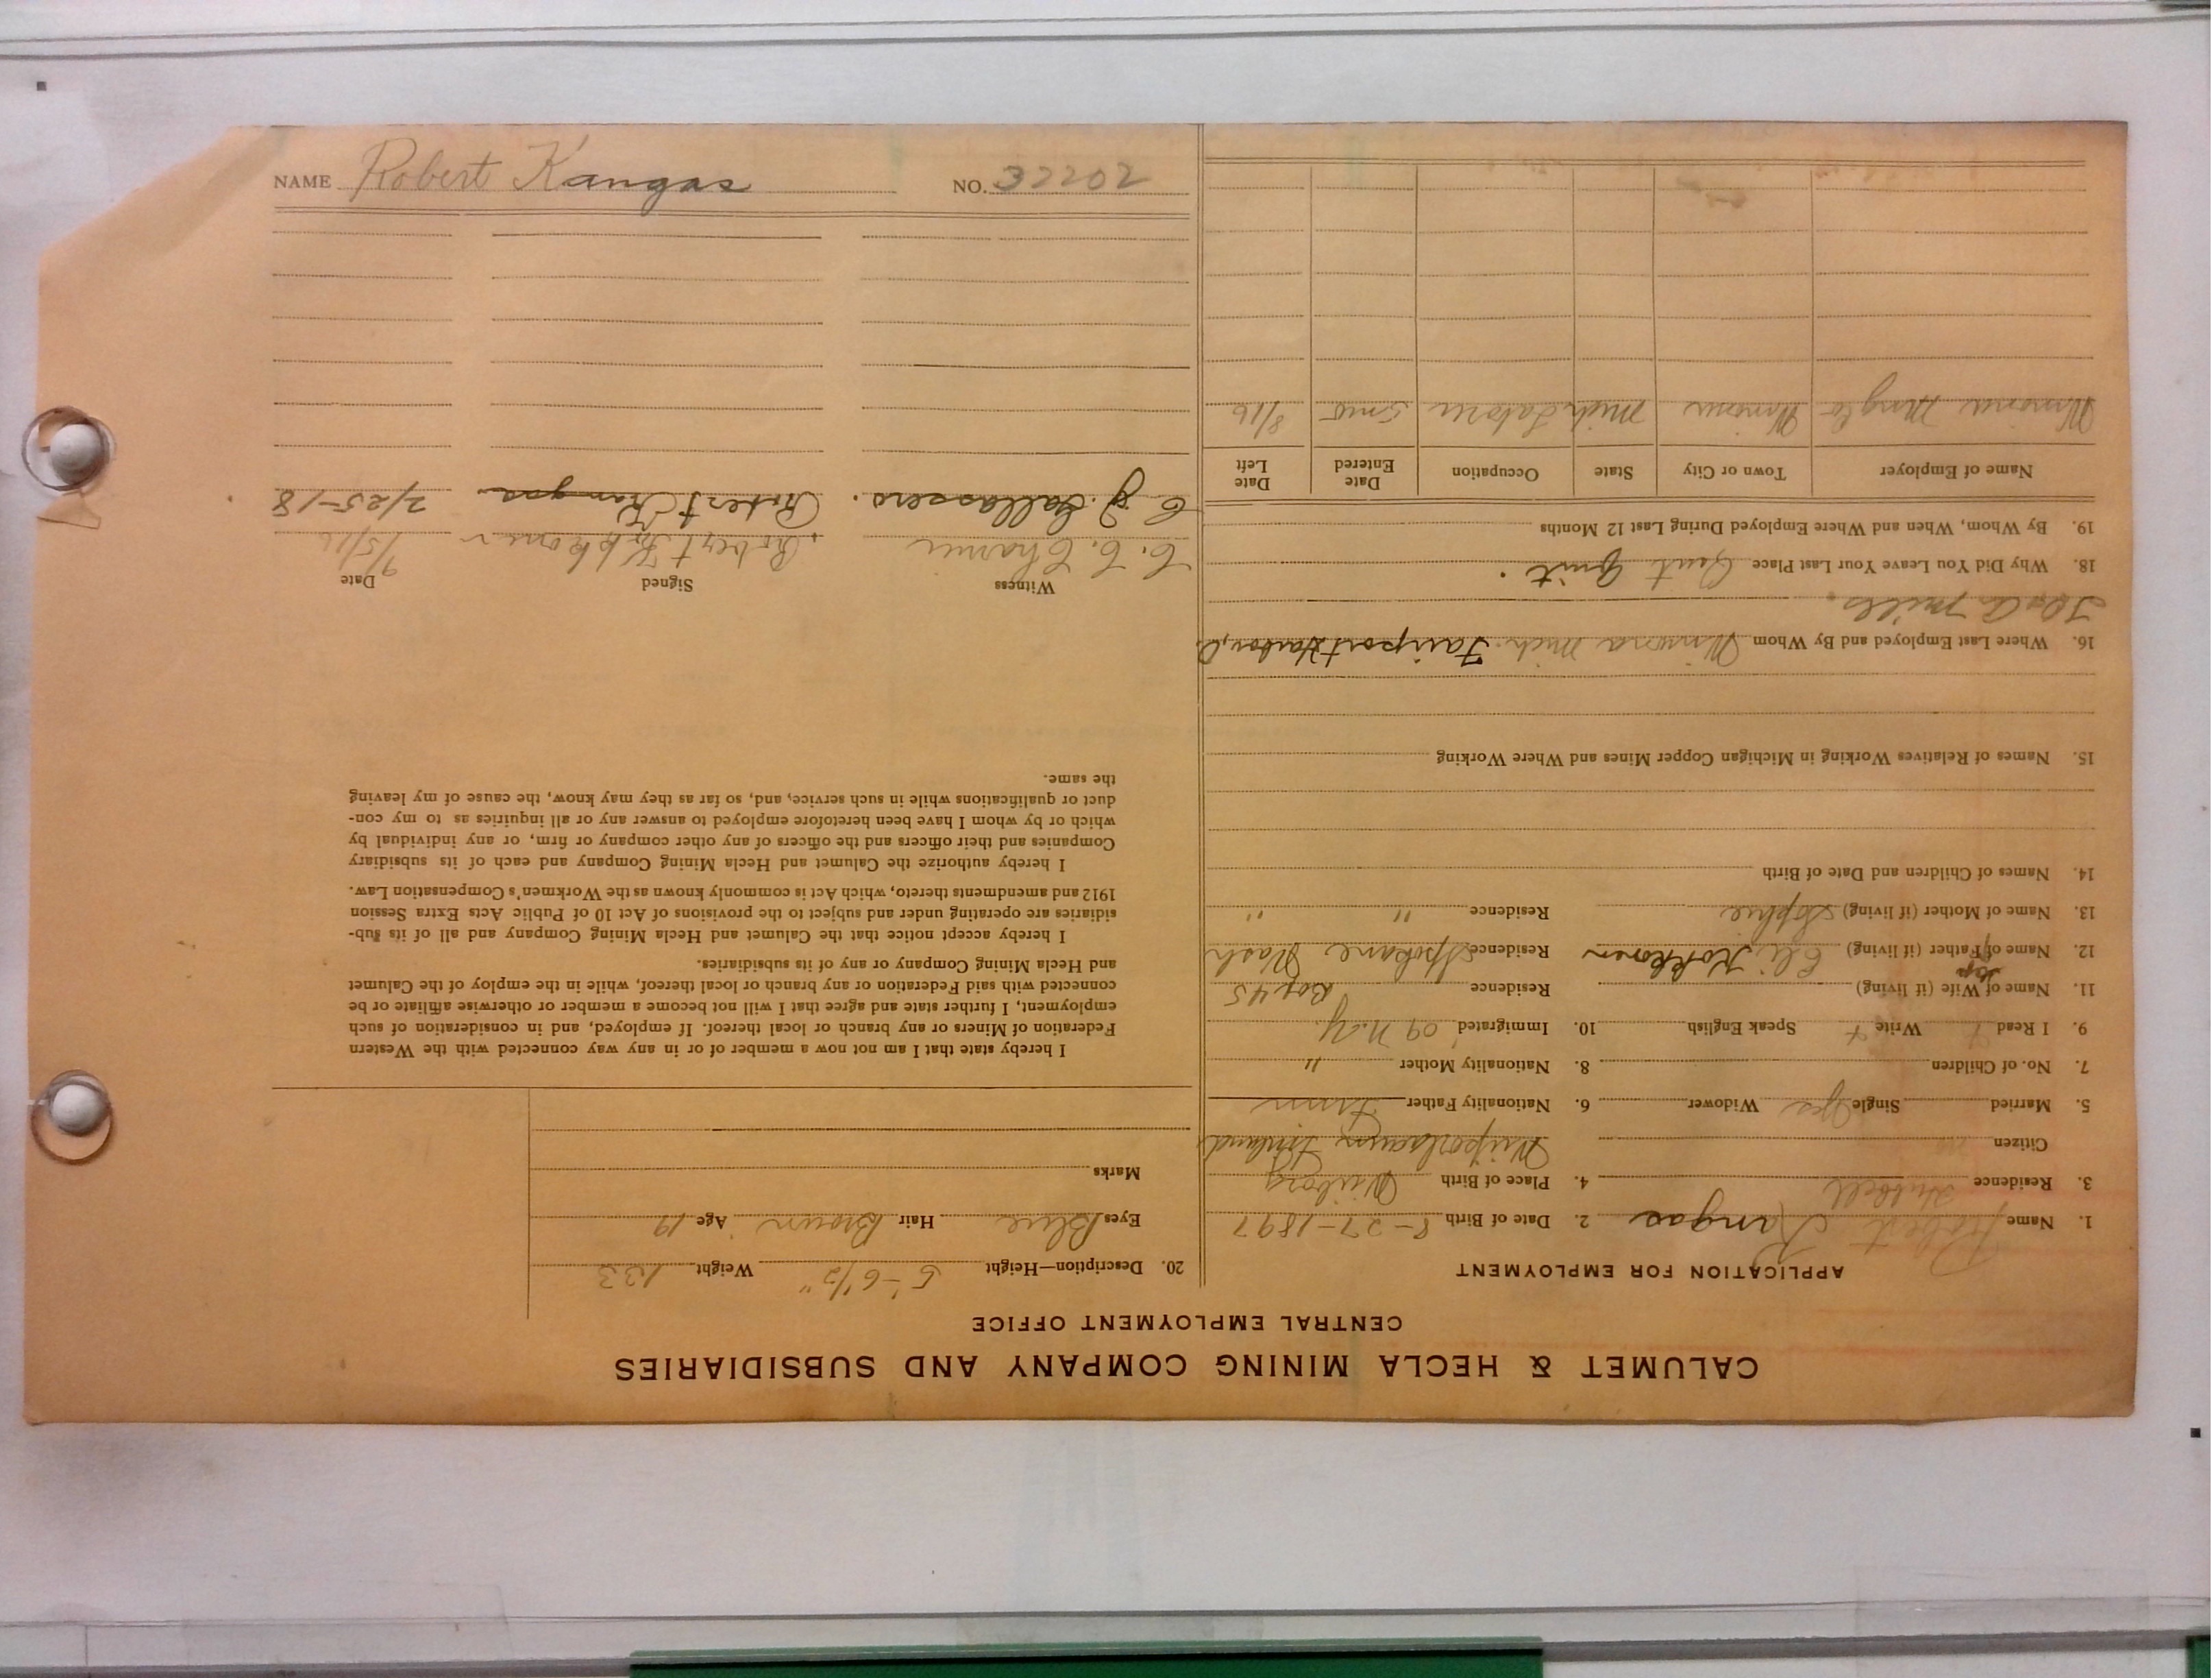 CALUMET & HECLA MINING COMPANY AND SUBSIDIARIES
CENTRAL EMPLOYMENT OFFICE
APPLICATION FOR EMPLOYMENT
1. Name Robert Kangas 2. Date of Birth 8-27-1897
3. Residence Hubbell 4. Place of Birth Wiiborg
Citizen no Finland
5. Married Single Yes Widower 6. Nationality Father Finn
7. No. of Children 8. Nationality Mother "
9. I Read + Write + Speak English 10. Immigrated '09 N.Y.
11. Name of Wife (if living) Residence Box 45
12. Name of Step Father (if living) Eli Kokkonen Residence Spokane Wash
13. Name of Mother (if living) Sophie Residence " "
14. Names of Children and Date of Birth
15. Names of Relatives Working in Michigan Copper Mines and Where Working
16. Where Last Employed and By Whom Winona Mich. Fairport Harbor, O.
Mills.
18. Why Did You Leave Your Last Place Quit Quit.
19. By Whom, When and Where Employed During Last 12 Months
Name of Employer Town or City State Occupation Date Entered Date Left
Winona Winona Mich Labore 5 mo 8/16
20. Description—Height 5'-6 1/2" Weight 133
Eyes Blue Hair Brown Age 19
Marks
I hereby state that I am not now a member of or in any way connected with the Western
Federation of Miners or any branch or local thereof. If employed, and in consideration of such
employment, I further state and agree that I will not become a member or otherwise affiliate or be
connected with said Federation or any branch or local thereof, while in the employ of the Calumet
and Hecla Mining Company or any of its subsidiaries.
I hereby accept notice that the Calumet and Hecla Mining Company and all of its sub-
sidiaries are operating under and subject to the provisions of Act 10 of Public Acts Extra Session
1912 and amendments thereto, which Act is commonly known as the Workmen's Compensation Law.
I hereby authorize the Calumet and Hecla Mining Company and each of its subsidiary
Companies and their officers and the officers of any other company or firm, or any individual by
which or by whom I have been heretofore employed to answer any or all inquiries as to my con-
duct or qualifications while in such service, and, so far as they may know, the cause of my leaving
the same.
Witness Signed Date
Robert Kokkonen 9/5/16
Robert Kangas 2/25-18
NAME Robert Kangas NO. 32202